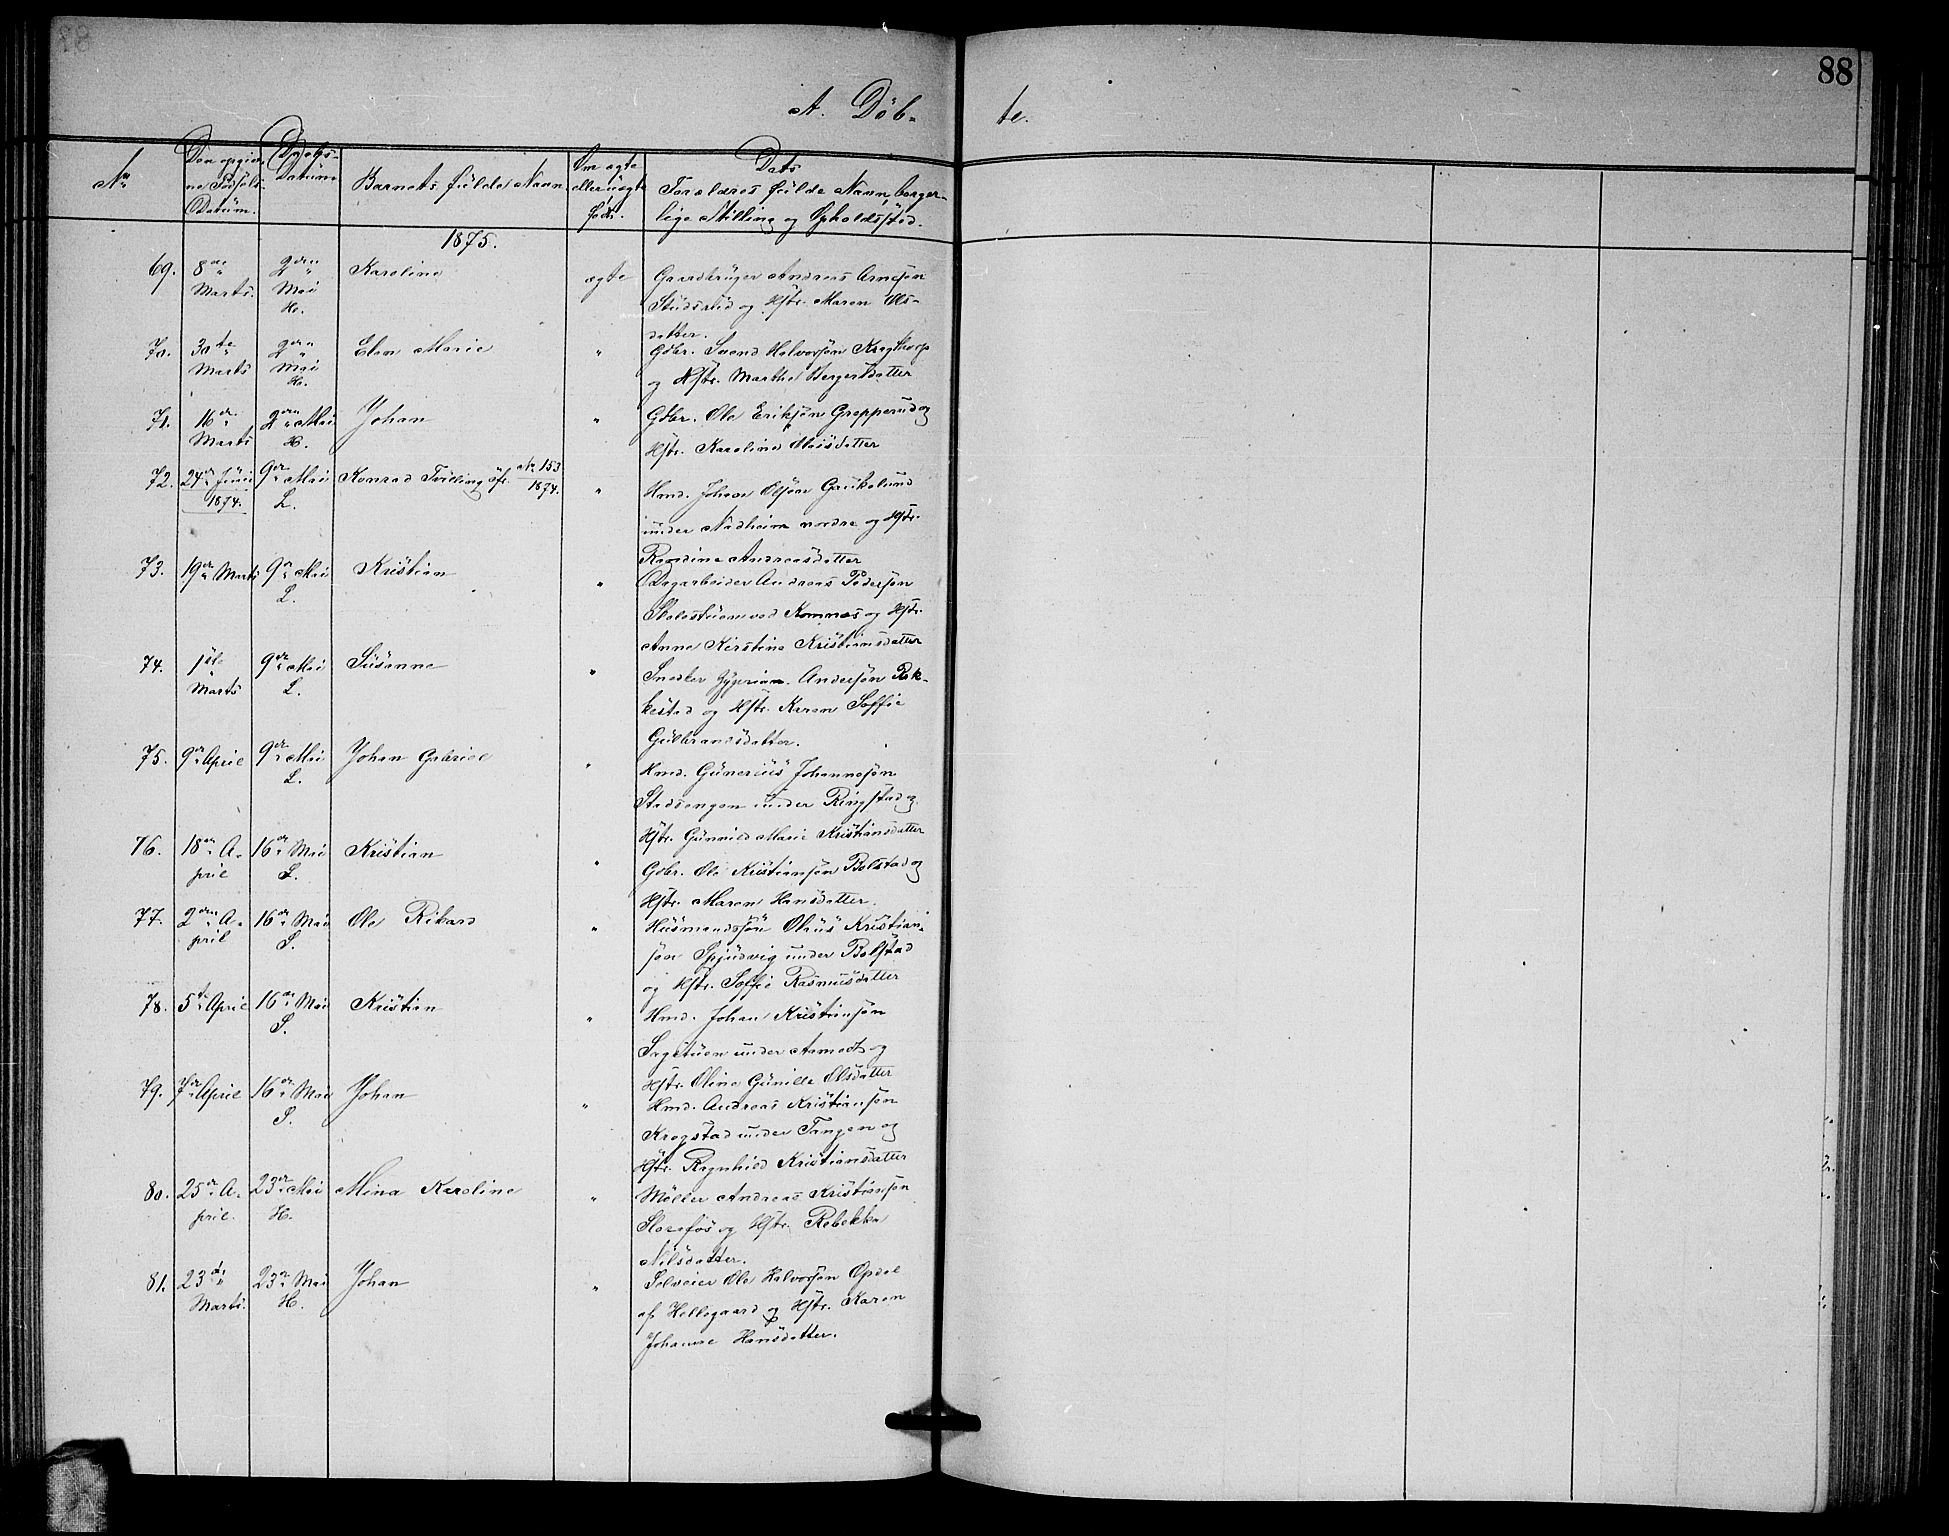 88
A. Döb- te.
No
Den opgiv-
ne Fødsels-
Datum.
Daabs-
Datum
Barnets fulde Navn
Om ægte
eller uægte
født.
Dets
Forældres fulde Navn, borger-
lige Stilling og Opholdssted.
1875.
69. 8de Marts. 2den Mai Ho. Karoline ægte Gaardbruger Andreas Arnesøn
Studsrud og Hstr. Maren Ols-
datter.
70. 30te Marts 2den Mai H. Elen Marie " Gdbr. Svend Halvorsøn Kragthorp
og Hstr. Marthe Bergersdatter
71. 16de Marts 2den Mai H. Johan " Gdbr. Ole Eriksøn Gropperud og
Hstr. Karoline datter
72. 24de Juni 1874. 9de Mai L. Konrad Tvilling af No 153 1874. " Hmd. Johan Olsøn Gaukelund
under Nadheim nordre og Hstr.
Randine Andreasdatter
73. 19de Marts 9de Mai L. Kristian " Dagarbeider Andreas Pedersøn
Skolestuen ved Komnæs og Hstr.
Anne Kirstine Kristiansdatter
74. 1ste Marts 9de Mai L. Susanne " Snedker Andersøn Rak-
kestad og Hstr. Karen Soffie
Gulbrandsdatter.
75. 9de April 9de Mai L. Johan Gabriel " Hmd. Gunerius Johannesøn
Stadsengen under Ringstad og
Hstr. Gunnild Marie Kristiansdatter
76. 18de A-
pril 16de Mai S. Kristian " Gdbr. Ole Kristiansøn Bolstad og
Hstr. Maren Hansdatter.
77. 2den A-
pril 16de Mai S. Ole Rikard " Husmandssøn Olaus Kristian-
søn Spjudvig under Bolstad
og Hstr. Soffie Rasmusdatter
78. 5te April 16de Mai S. Kristian " Hmd. Johan Kristiansøn
Sagstuen under Asmodt og
Hstr. Oline Gunille Olsdatter
79. 7de April 16de Mai S. Johan " Hmd. Andreas Kristiansøn
Krogstad under Tangen og
Hstr. Ragnhild Kristiansdatter
80. 25de A-
pril. 23de Mai H. Mina Karoline " Møller Andreas Kristiansøn
Slorefos og Hstr. Rebekka
Nilsdatter.
81. 23de Marts. 23de Mai H. Johan " Selveier Ole Halvorsøn Opdal
af Hellegaard og Hstr. Karen
Johanne Hansdatter.